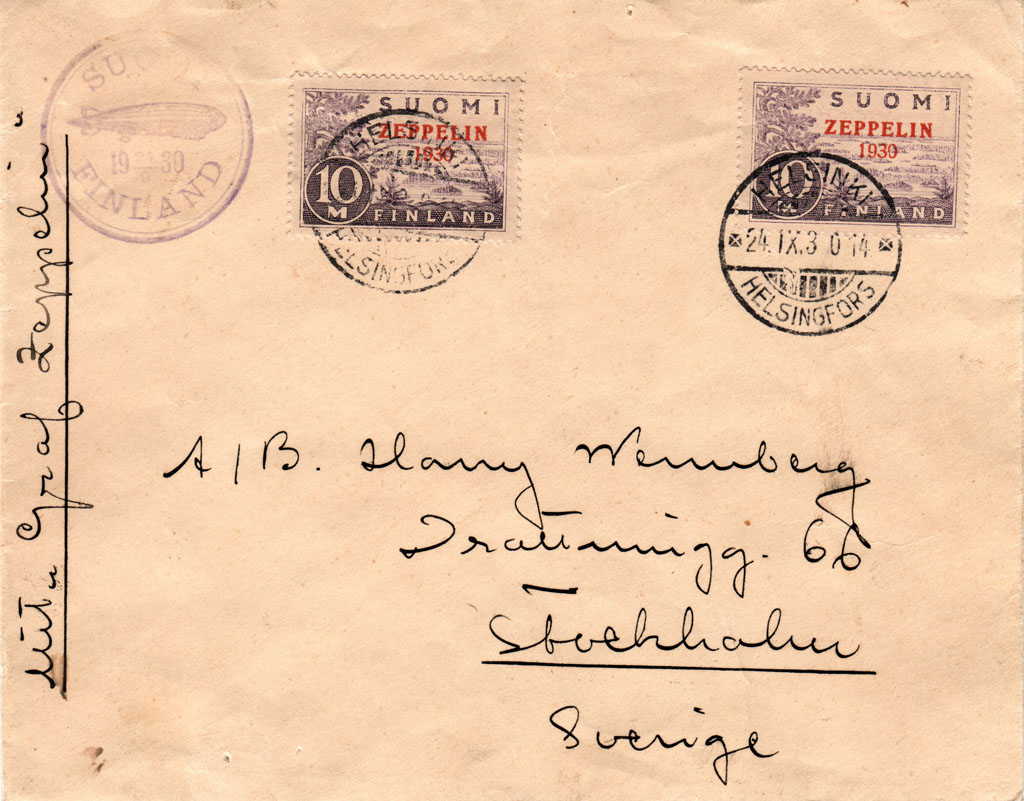 SUOMI
1930
FINLAND
SUOMI
ZEPPELIN
1930
10
M
FINLAND
HELSINKI
HELSINGFORS
SUOMI
ZEPPELIN
1930
10
M
FINLAND
HELSINKI
24.IX.3 0 14
HELSINGFORS
Mit „Graf Zeppelin“
A/B. Harry Wennberg
Drottningg. 66
Stockholm
Sverige